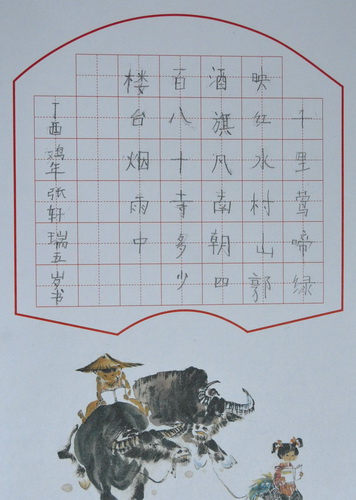 千里莺啼绿
映红水村山郭
酒旗风南朝四
百八十寺多少
楼台烟雨中
丁酉鸡年张轩瑞五岁书